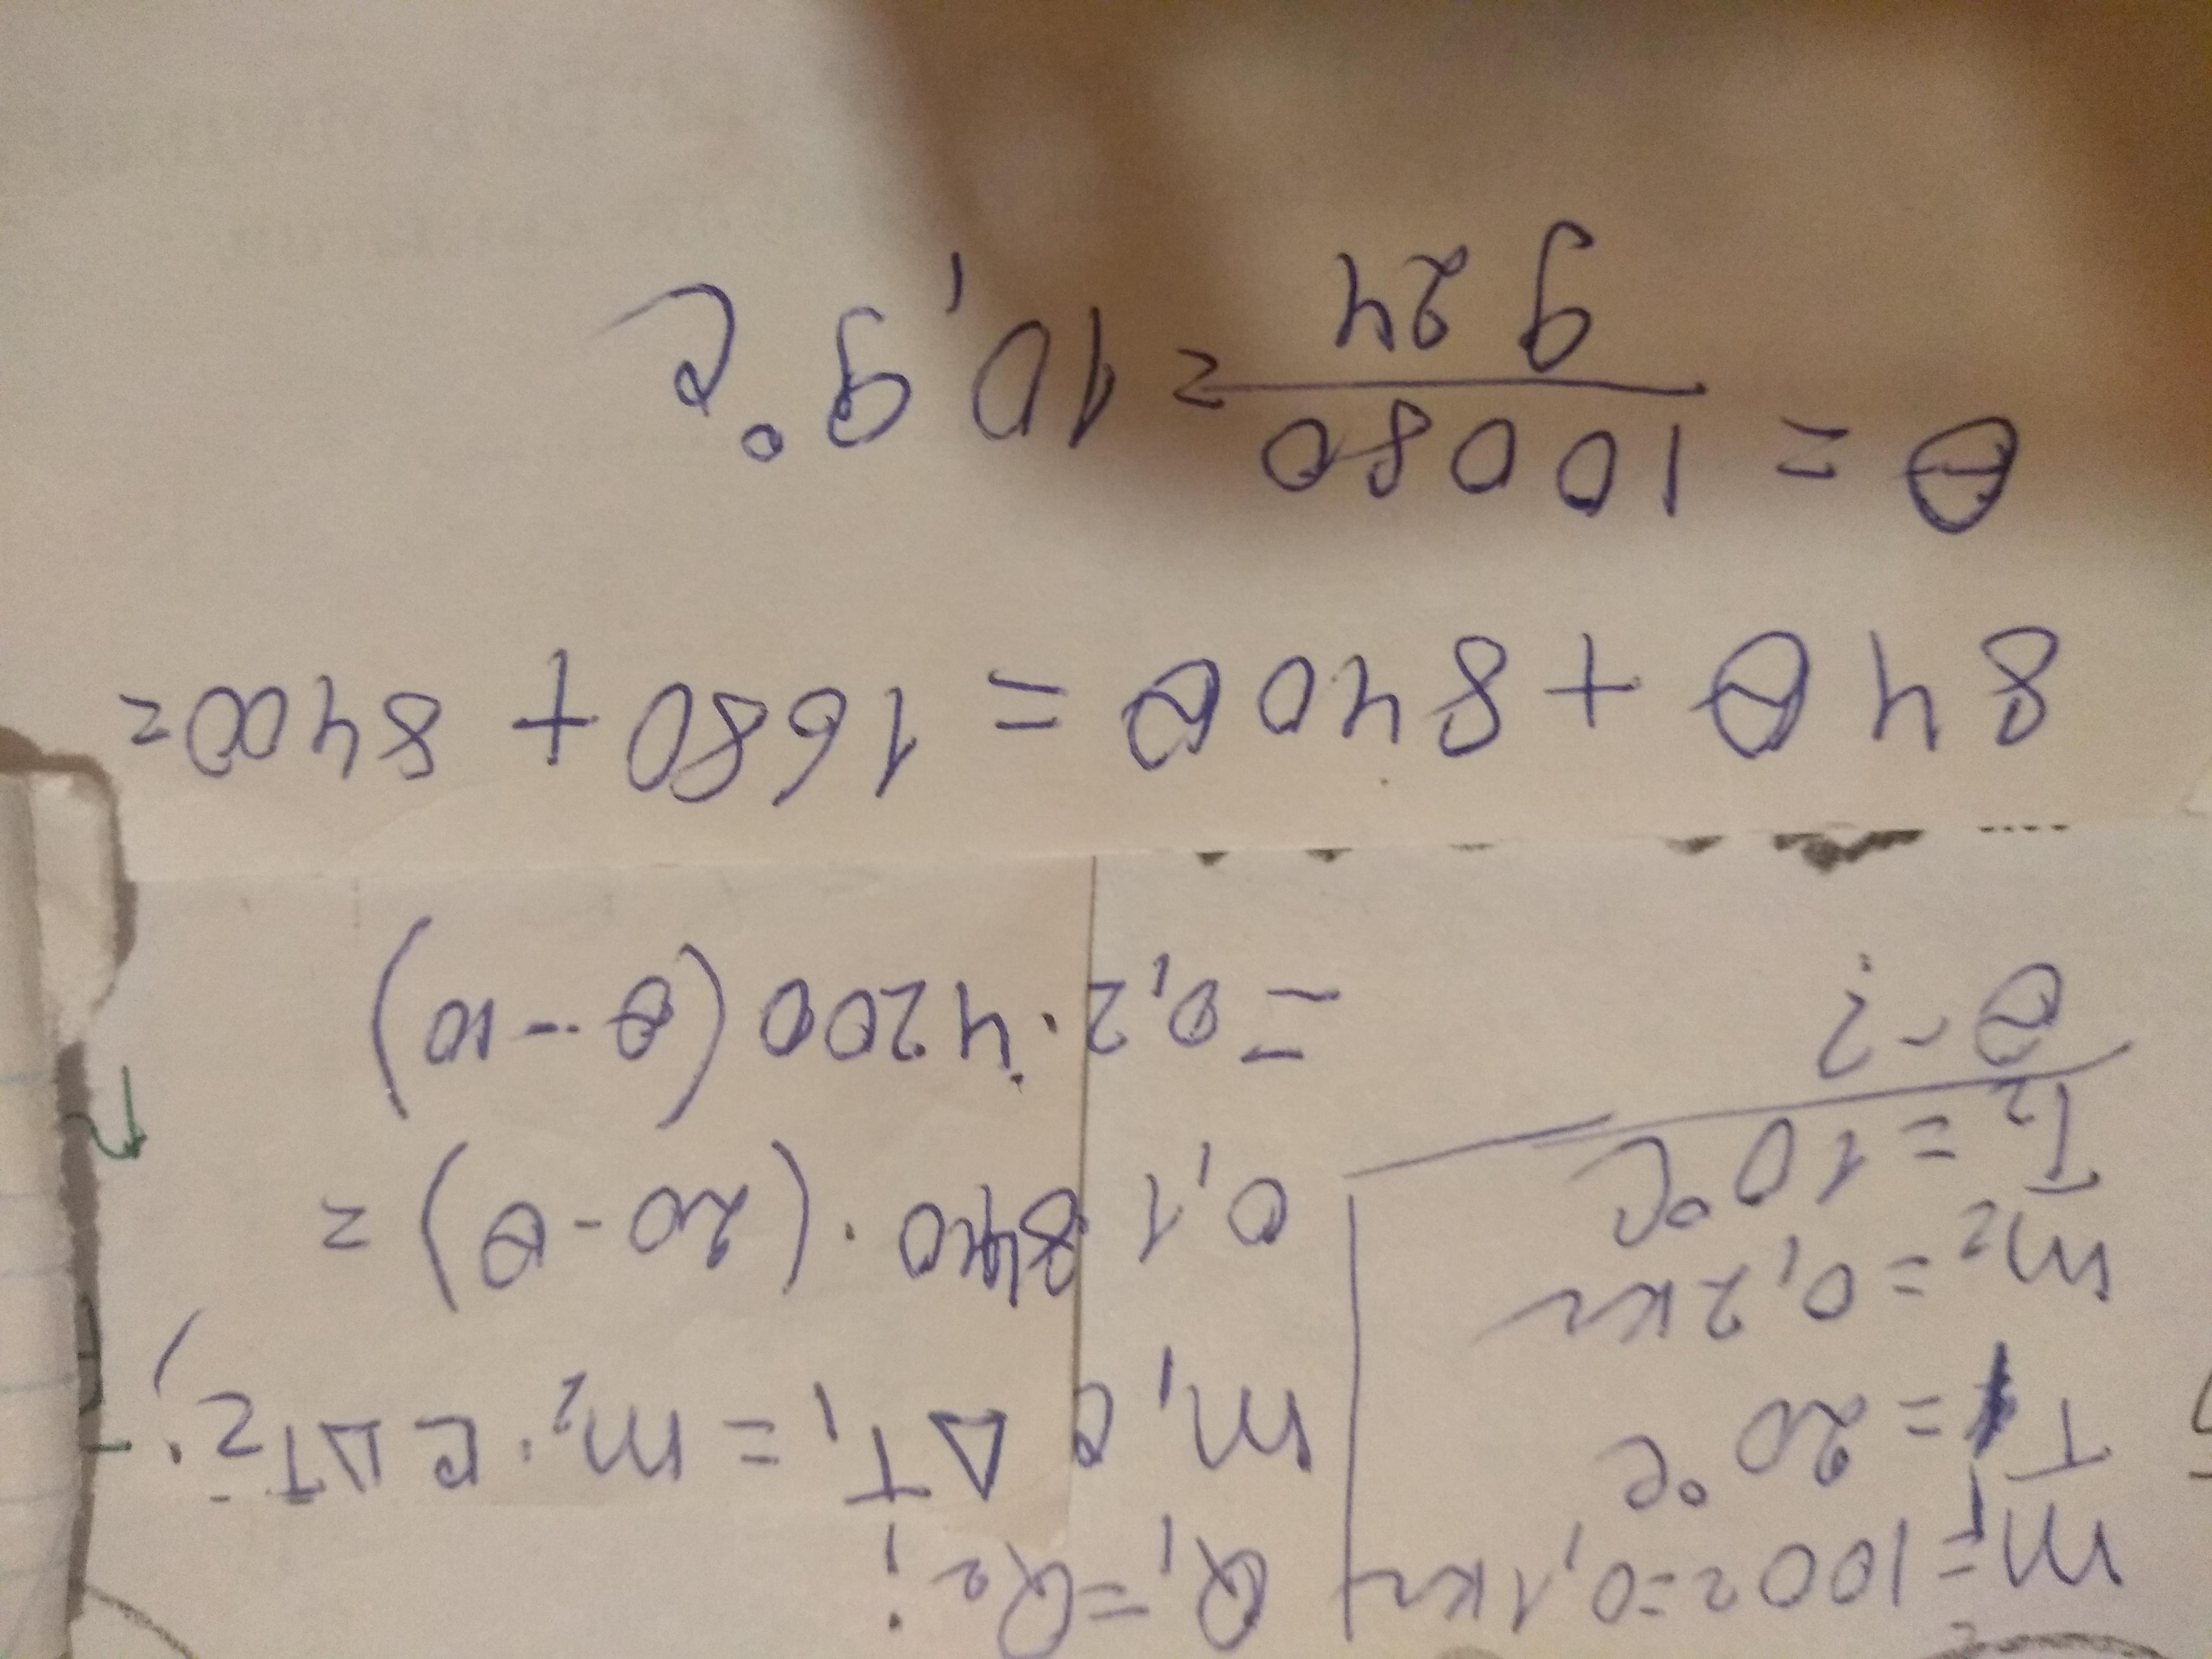 m₁=100г=0,1кг
T₁=20°C
m₂=0,2кг
T₂=10°C
θ-?
Q₁=Q₂;
m₁c ΔT₁=m₂·cΔT₂;
0,1 840·(20-θ)=
=0,2·4200(θ-10)
84θ+840θ=1680+8400=
θ=10080/924=10,9°C